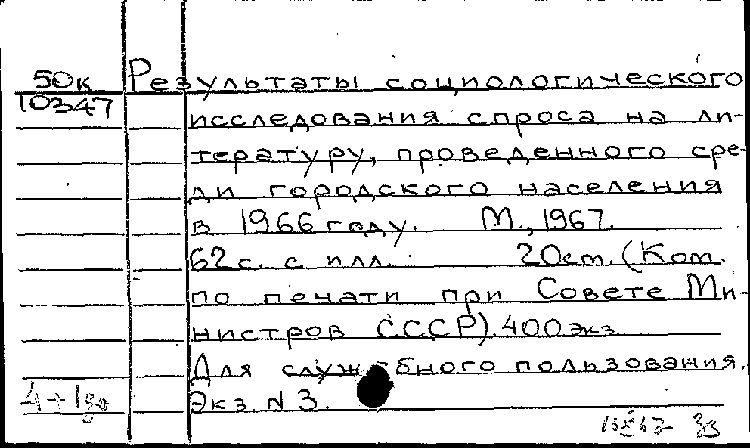 50к Результаты социологического
10347
исследования спроса на ли-
тературу, проведенного сре-
ди городского населения
в 1966 году. М., 1967.
62 с. с илл. 20см. (Ком.
по печати при Совете Ми-
нистров СССР). 400 экз
Для служебного пользования.
Экз. N 3.
4+1